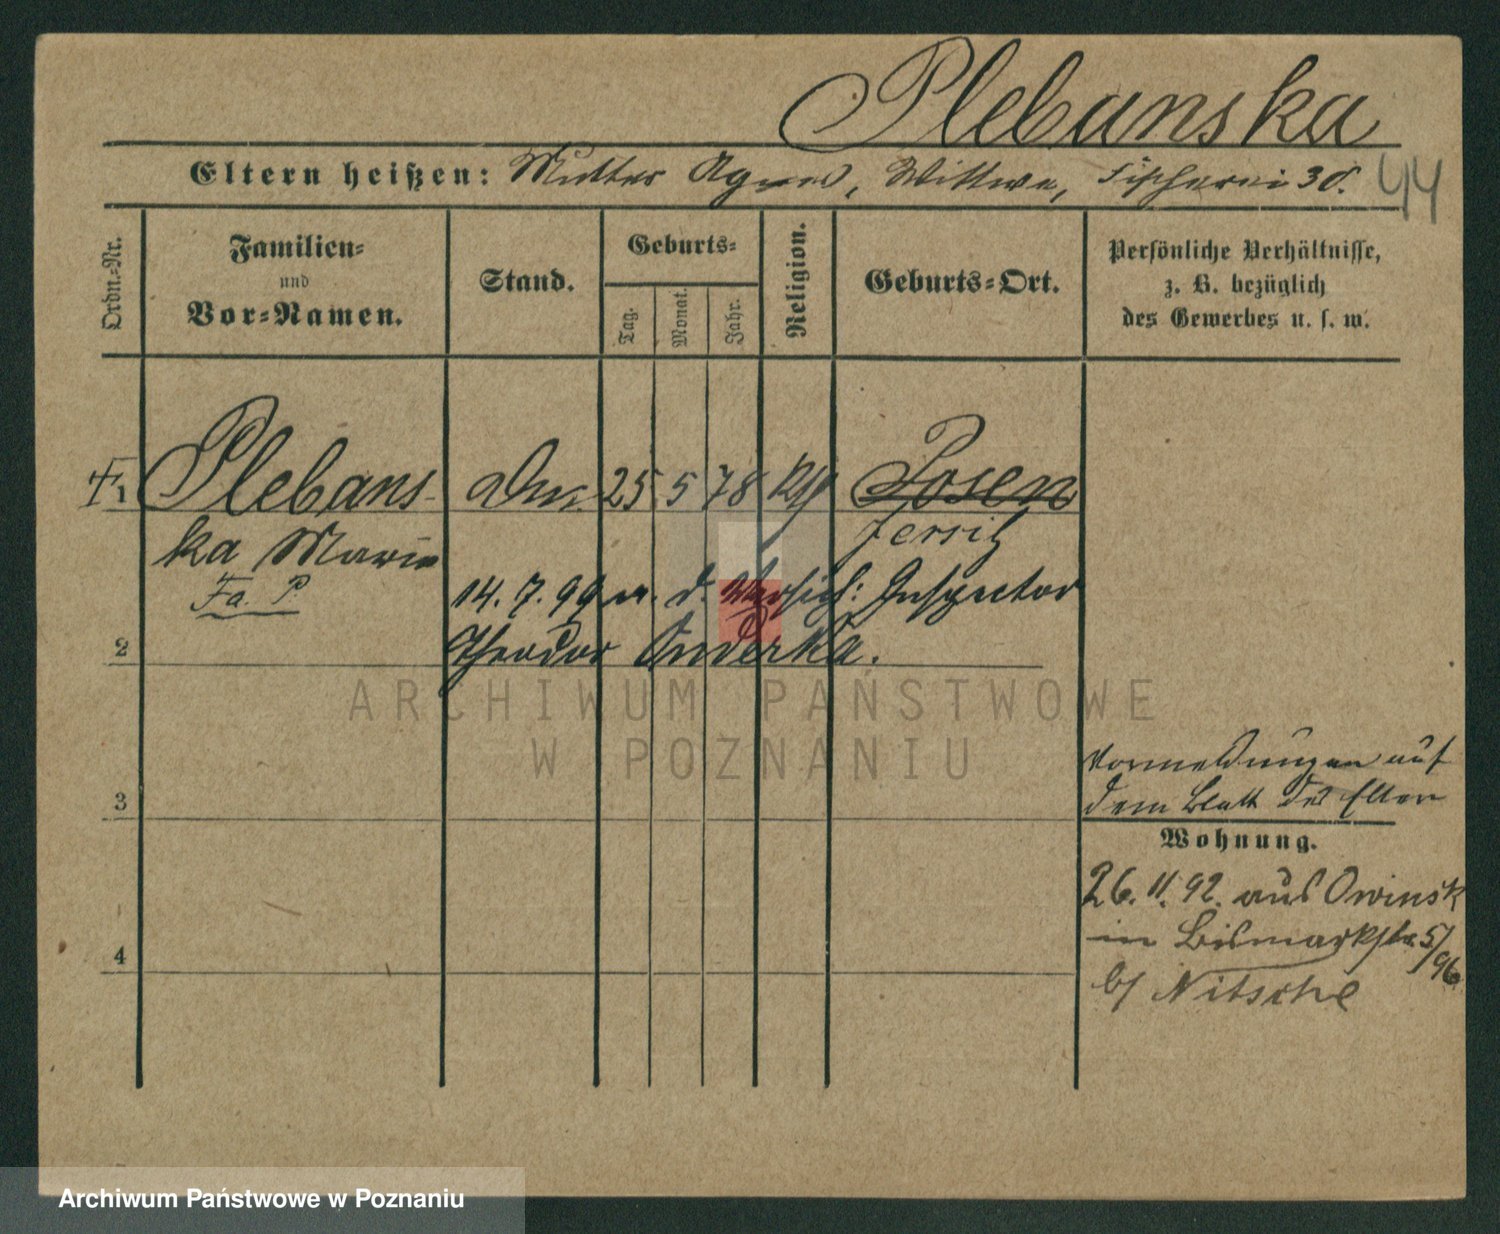 Plebanska
Eltern heißen: Mutter Agnes, Wittwe, Fischerei 30. 44
Ordn.-Nr.
Familien-
und
Vor-Namen.
Stand.
Geburts-
Tag.
Monat.
Jahr.
Religion.
Geburts-Ort.
Persönliche Verhältnisse,
z. B. bezüglich
des Gewerbes u. s. w.
1 Plebans- 25 5 78 Posen
ka Marie Jersitz
Fa. P
14. 7. 99 m. d. Versich: Inspector
2 Theodor Onderka.
3
4
Vormeldungen auf
dem Blatt der Eltern
Wohnung.
26. 11. 92. aus Owinsk
in Bismarkstr. 5/
96
b/ Nitsche
ARCHIWUM PAŃSTWOWE
W POZNANIU
Archiwum Państwowe w Poznaniu